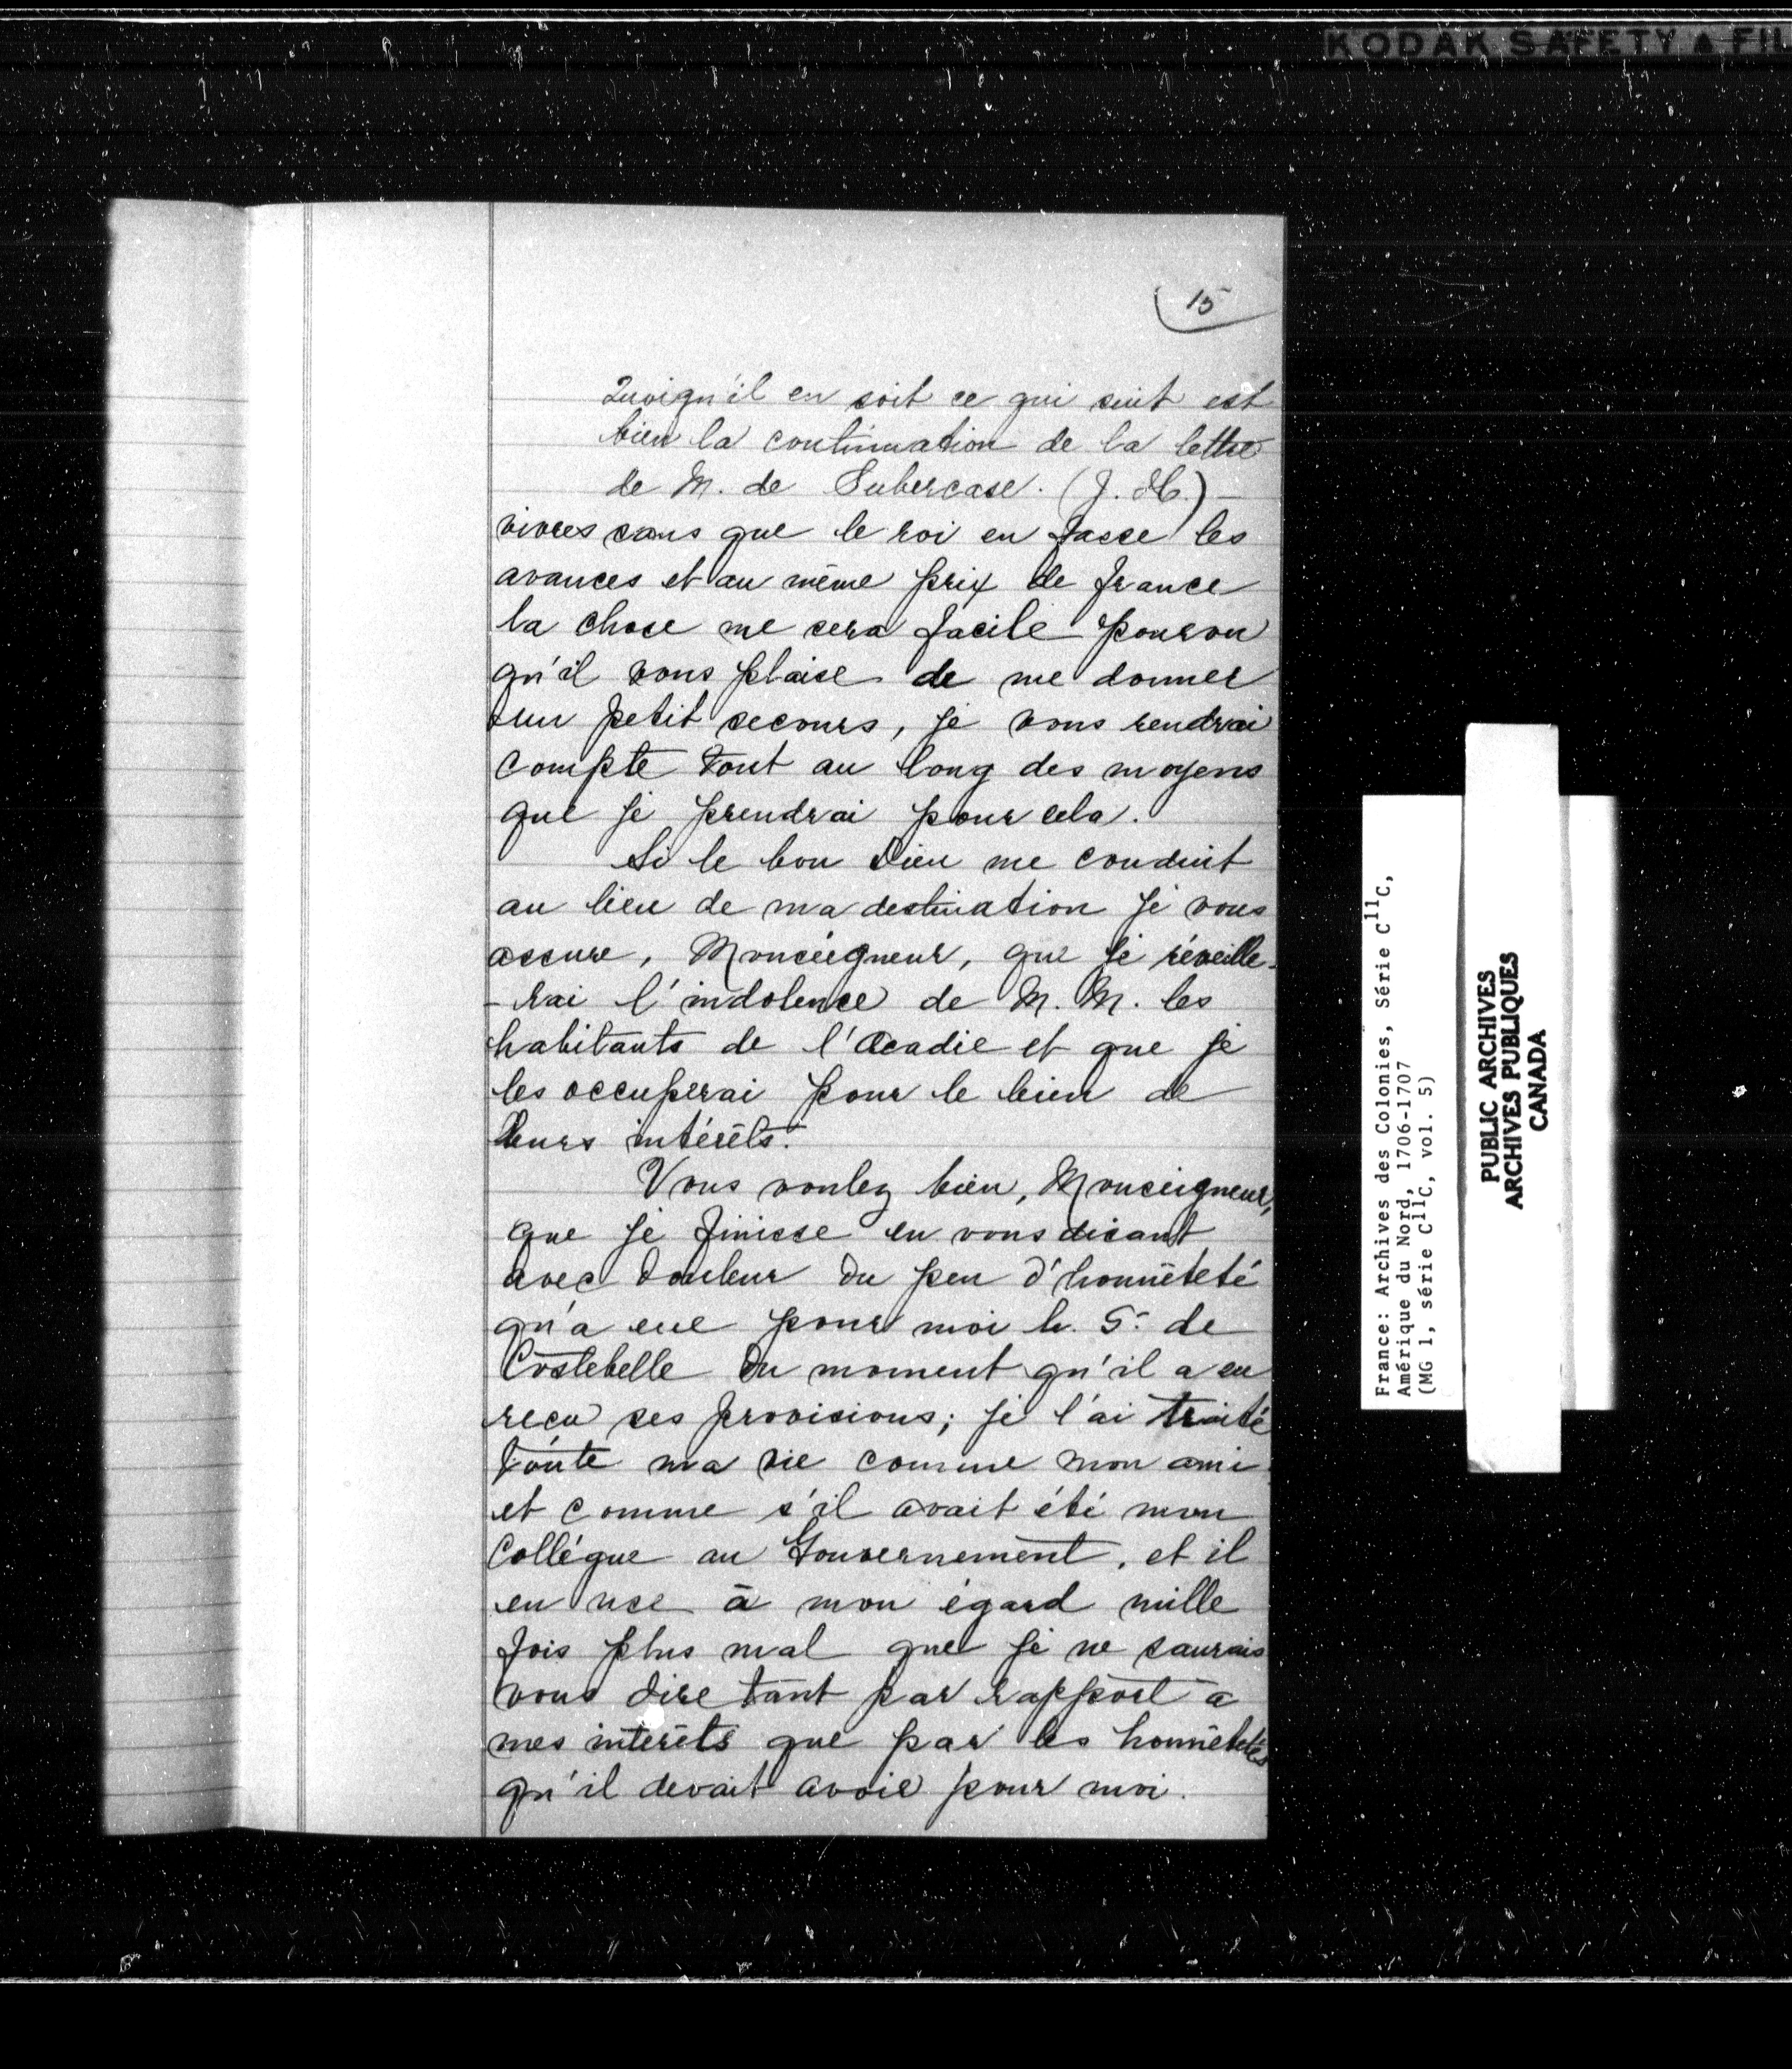 KODAK SAFETY ▲ FIL
15
Quoiqu'il en soit ce qui suit est
bien la continuation de la lettre
de M. de Subercase. (J. H.) –
vivres sans que le roi en fasse les
avances et au même prix de france
la chose me sera facile pourvu
qu'il vous plaise de me donner
un petit secours, je vous rendrai
compte tout au long des moyens
que je prendrai pour cela.
Si le bon Dieu me conduit
au lieu de ma destination je vous
assure, Monseigneur, que je réveille-
-rai l'indolence de M. M. les
habitants de l'Acadie et que je
les occuperai pour le bien de
leurs intérêts.
Vous voulez bien, Monseigneur,
que je finisse en vous disant
avec douleur du peu d'honnêteté
qu'a eue pour moi le S. de
Costebelle du moment qu'il a eu
reçu ses provisions; je l'ai traité
toute ma vie comme mon ami
et comme s'il avait été mon
Collégue au Gouvernement, et il
en use à mon égard mille
fois plus mal que je ne saurais
vous dire tant par rapport a
mes intérêts que par les honnêtetés
qu'il devait avoir pour moi.
France: Archives des Colonies, Série C11C,
Amérique du Nord, 1706-1707
(MG 1, série C11C, vol. 5)
PUBLIC ARCHIVES
ARCHIVES PUBLIQUES
CANADA